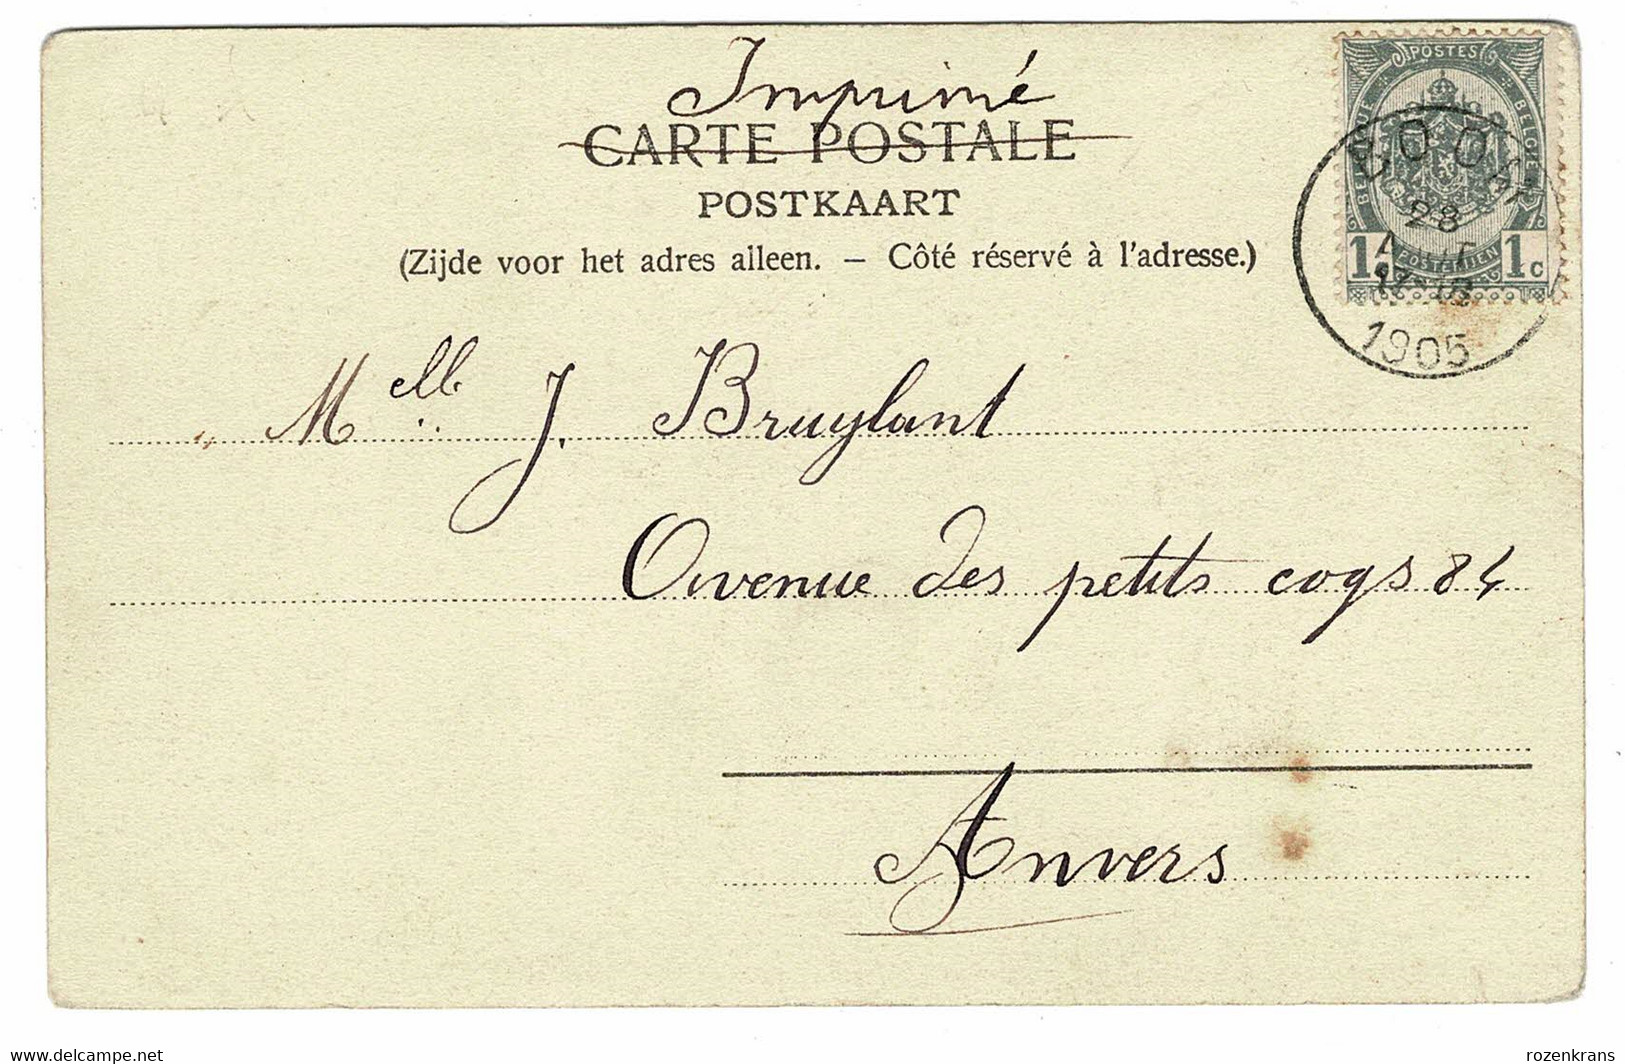 Imprimé
CARTE POSTALE
POSTKAART
(Zijde voor het adres alleen. – Côté réservé à l'adresse.)
POSTES
BELGIË
POSTERIJEN
1 1c
28
1905
Melle J. Bruylant
Avenue des petits coqs 84
Anvers
https://www.delcampe.net
rozenkrans